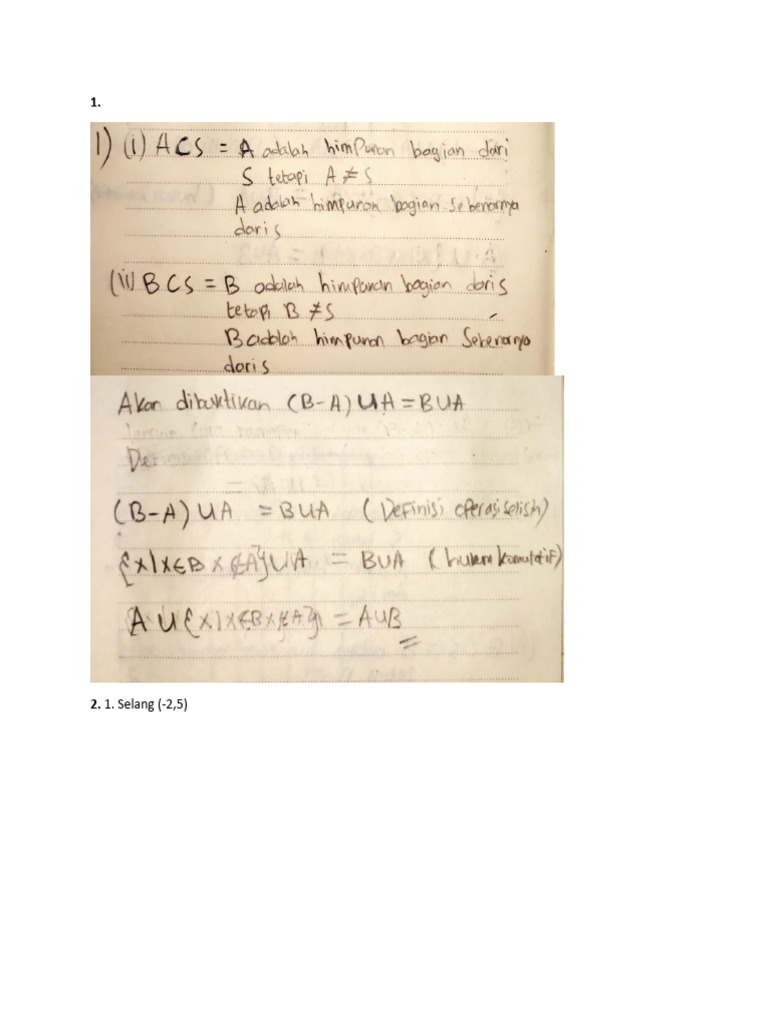 1.
1) (i) A⊂S = A adalah himpunan bagian dari
S tetapi A ≠ S
A adalah himpunan bagian sebenarnya
dari S
(ii) B⊂S = B adalah himpunan bagian dari S
tetapi B ≠ S
B adalah himpunan bagian sebenarnya
dari S
Akan dibuktikan (B-A) ∪ A = B∪A
(B-A) ∪ A = B∪A (Definisi operasi selisih)
{x|x∈B x∉A} ∪ A = B∪A (hukum komutatif)
A ∪ {x|x∈B x∉A} = A∪B
2. 1. Selang (-2,5)